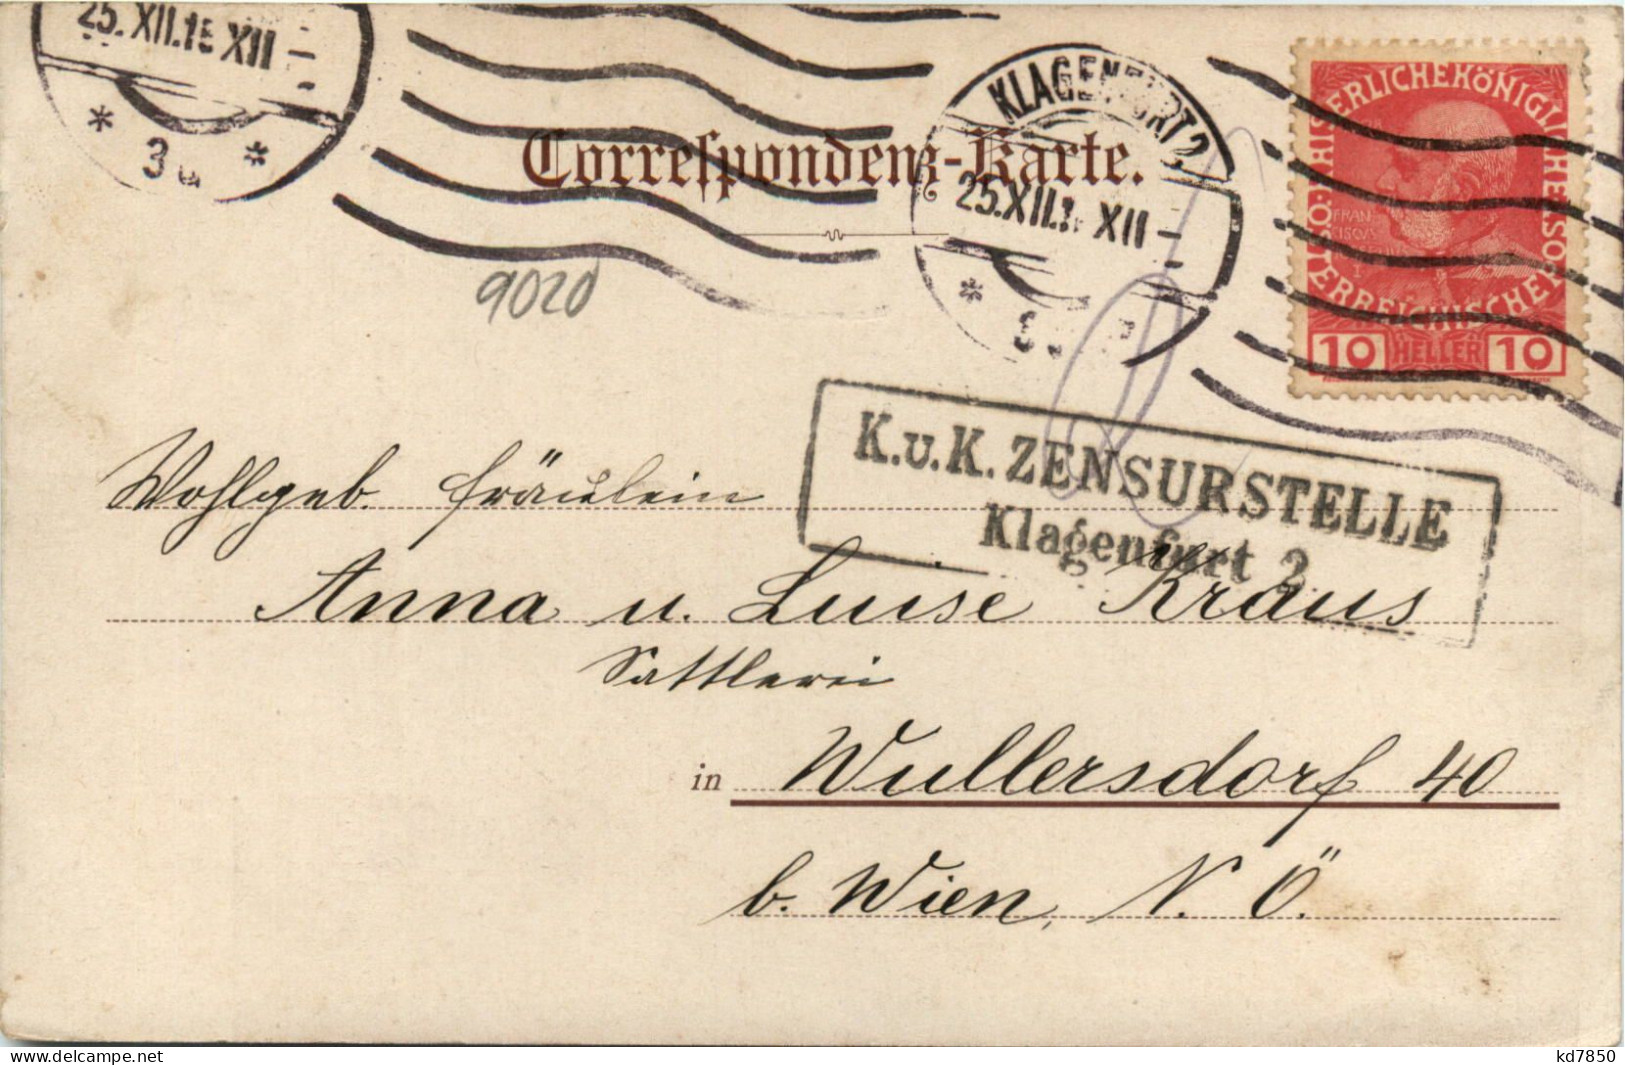 25.XII.15 XII
* 3a *
KLAGENFURT 2
25.XII.1 XII
*
Correspondenz-Karte.
KAISERLICHE KÖNIGLICHE
ÖSTERREICHISCHE
FRAN
10 HELLER 10
9020
K.u.K. ZENSURSTELLE
Klagenfurt 2
Wohlgeb. Fräulein
Anna u. Luise Kraus
Sattlerei
in Wullersdorf 40
b. Wien, N. Ö.
delcampe.net
kd7850